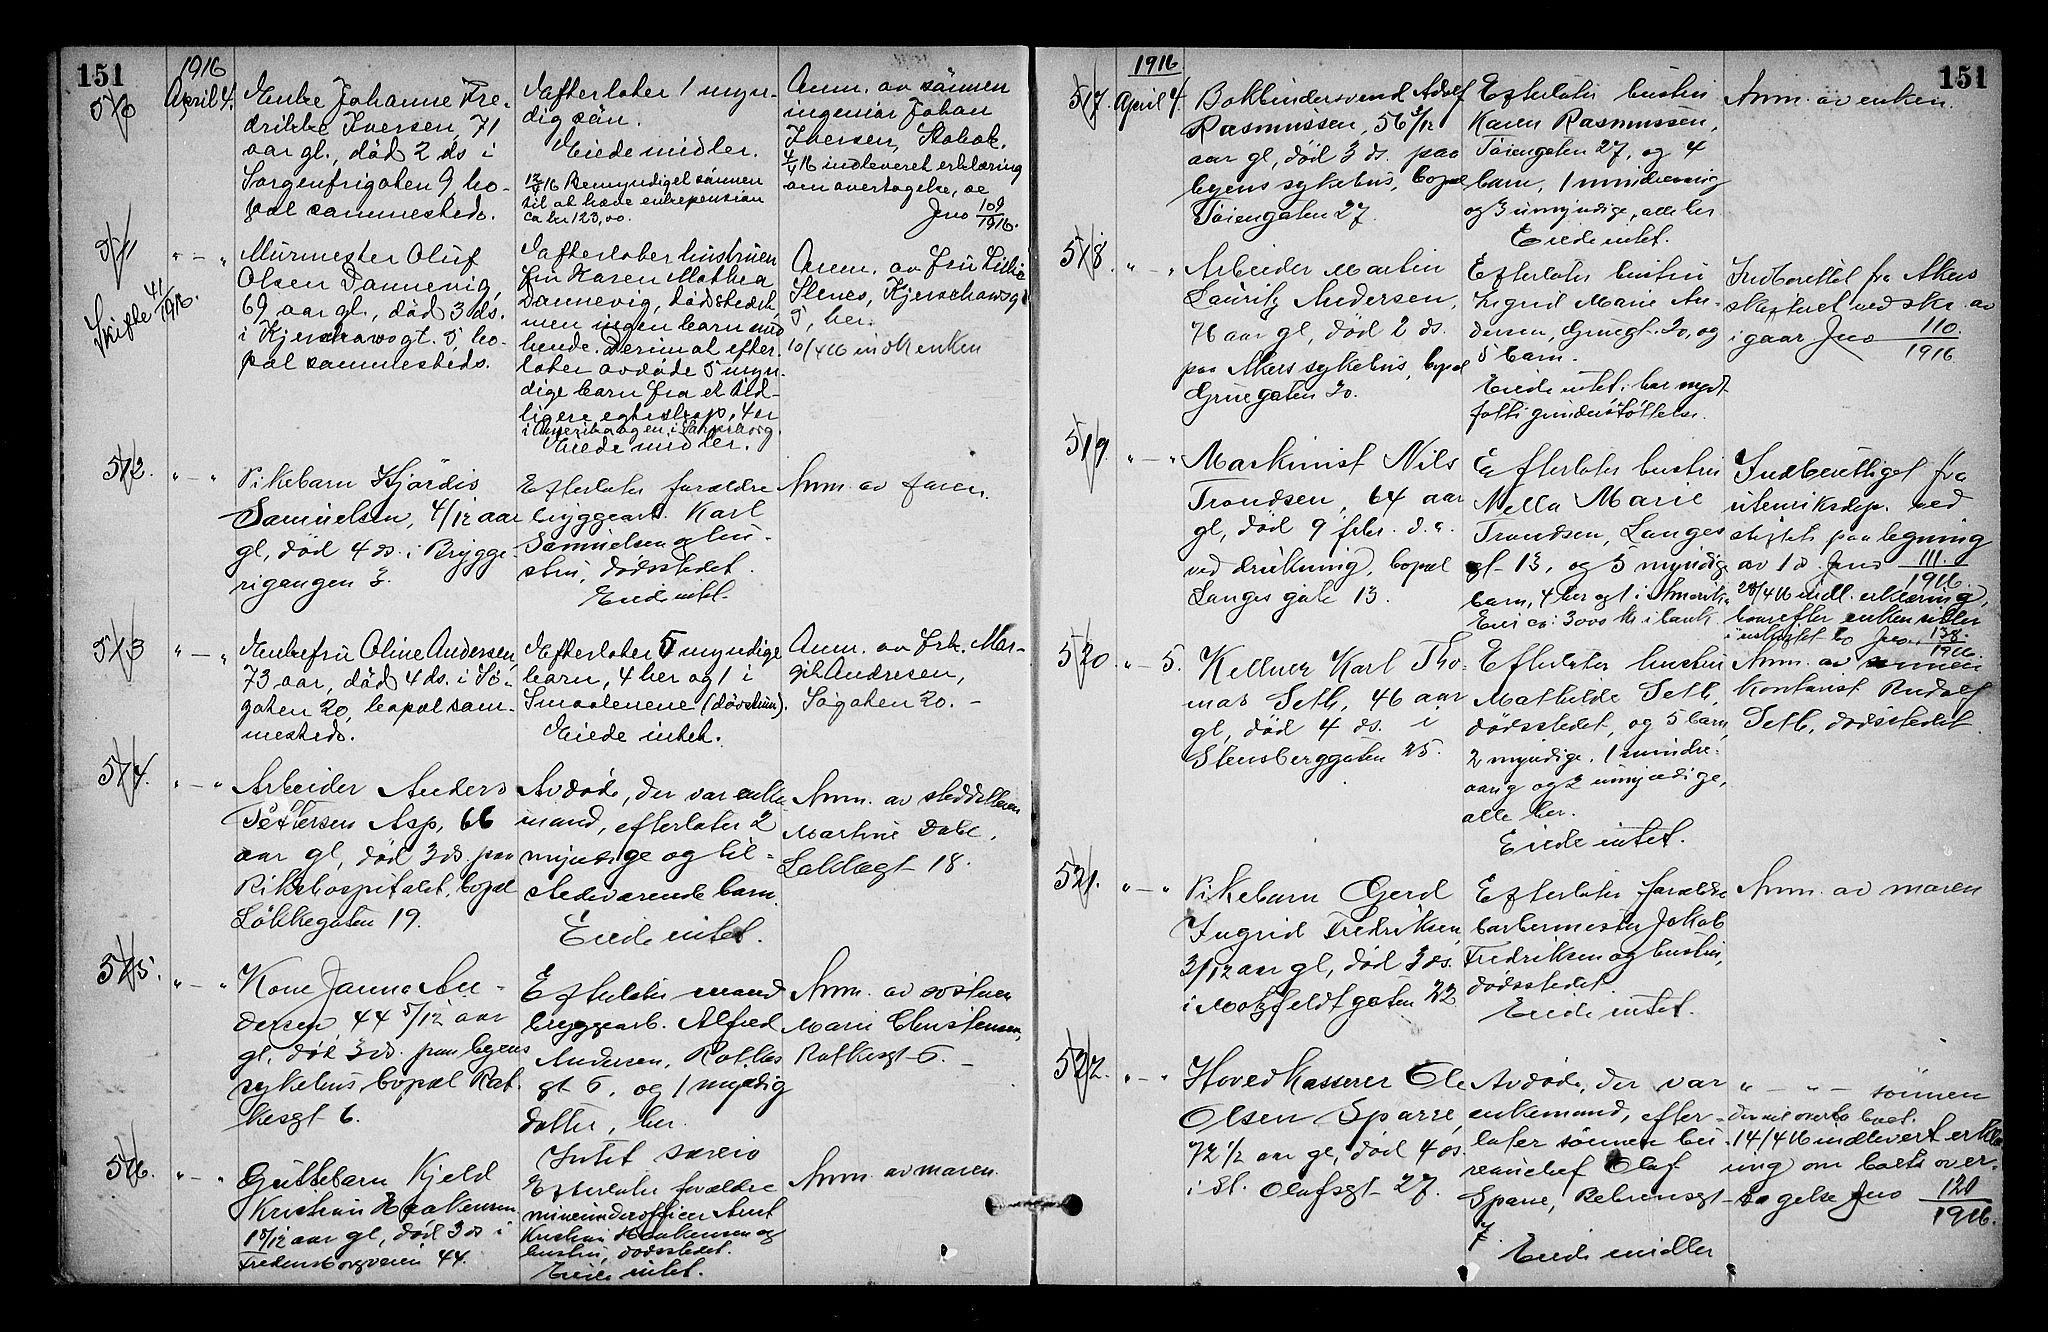 151
1916
510
April 4.
Enke Johanne Fre-
drikke Iversen, 71
aar gl., død 2 ds i
Sorgenfrigaten 9, bo-
pæl sammesteds.
Efterlater 1 myn-
dig søn.
Eiede midler.
12/5 16 Bemyndiget sønnen
til at hæve enkepension
ca kr 123,00.
Anm. av sønnen
ingeniør Johan
Iversen, Skabok.
16 indleveret erklæring
om overtagelse, se
Jno 109/1916.
511
Skifte 41/1916.
" — "
Murmester Oluf
Olsen Dannevig,
69 aar gl., død 3 ds.
i Kjerschowsgt. 5, bo-
pæl sammesteds.
Efterlater hustruen
fru Karen Mathea
Dannevig, dødsstedet,
men ingen barn med
hende. Derimot efter-
later avdøde 5 myn-
dige barn fra et tid-
ligere egteskap, 4 er
i Amerika og en i Sarpsborg.
Eiede midler.
Anm. av Fru Lilli
Stenes, Kjerschowsgt
5, her.
10/4 16 indk enken
512.
" — "
Pikebarn Hjørdis
Samuelsen, 4/12 aar
gl, død 4 ds. i Brygge-
rigangen 3.
Efterlater forældre
bryggearb. Karl
Samuelsen og hu-
stru, dødsstedet.
Eiede intet.
Anm. av faren.
513
" — "
Enkefru Oline Andersen,
73 aar, død 4 ds. i Sø-
gaten 20, bopæl sam-
mesteds.
Efterlater 5 myndige
barn, 4 her og 1 i
Smaalenene (døvstum).
Eiede intet.
Anm. av Frk. Mar-
git Andresen,
Søgaten 20. —
514.
" — "
Arbeider Anders
Pettersen Asp, 66
aar gl, død 3 ds. paa
Rikshospitalet, bopæl
Løkkegaten 19.
Avdøde, der var enke-
mand, efterlater 2
myndige og til-
stedeværende barn.
Eiede intet.
Anm. av steddatteren
Martine Dahl,
Lakkegt 18.
515.
" — "
Kone Janna An-
dersen, 44 5/12 aar
gl, død 3 ds. paa byens
sykehus, bopæl Rat-
kesgt 6.
Efterlater mand
bryggearb. Alfred
Andersen, Ratkes
gt 6, og 1 myndig
datter, her.
Intet særeie
Anm. av søsteren
Marie Christensen,
Ratkesgt 6. —
516.
" — "
Guttebarn Kjeld
Kristian Haakensen
1 5/12 aar gl, død 3 ds i
Fredensborgveien 44.
Efterlater forældre
mineunderofficer Arnt
Kristian Haakensen og
hustru, dødsstedet.
Eiede intet.
Anm. av moren.
151
1916
517
April 4.
Bokbindersvend Adolf
Rasmussen, 56 3/12
aar gl, død 3 ds. paa
byens sykehus, bopæl
Tøiengaten 27.
Efterlater hustru
Karen Rasmussen,
Tøiengaten 27, og 4
barn, 1 mindreaarig
og 3 umyndige, alle her
Eiede intet.
Anm. av enken.
518.
" — "
Arbeider Martin
Lauritz Andersen,
76 aar gl, død 2 ds.
paa Akers sykehus, bopæl
Gruegaten 20.
Efterlater hustru
Ingrid Marie An-
dersen, Gruegt. 20, og
5 barn.
Eiede intet; har mott
fattigunderstøttelse.
Indberettet fra Akers
skifteret ved skr. av
igaar Jno 110./1916
519.
" — "
Maskinist Nils
Trondsen, 64 aar
gl, død 9 febr. d.a.
ved drukning, bopæl
Langes gate 13.
Efterlater hustru
Nella Marie
Trondsen, Langes
gt 13, og 5 myndige
barn, 4 her og 1 i Amerika
Eier ca: 3000 kr i bank
Indberettiget fra
utenriksdep. ved
skiftets paategning
av 1 ds. Jno 111./1916.
28/4 16 indl. erklæring,
hvorefter enken sitter
i uskiftet bo Jno. 138./1916.
520.
" — 5.
Kellner Karl Tho-
mas Seth, 46 aar
gl, død 4 ds. i
Stensberggaten 25.
Efterlater hustru
Mathilde Seth,
dødsstedet, og 5 barn,
2 myndige, 1 mindre-
aarig og 2 umyndige,
alle her.
Eiede intet.
Anm. av sønnen
kontorist Rudolf
Seth, dødsstedet.
521.
" — "
Pikebarn Gerd
Ingrid Fredriksen,
3/12 aar gl, død 3 ds.
i Motzfeldtgaten 22
Efterlater forældre
barbermester Jakob
Fredriksen og hustru,
dødsstedet.
Eiede intet.
Anm. av moren
522.
" — "
Hovedkasserer Ole
Olsen Sparre,
72 1/2 aar gl, død 4 ds.
i St. Olafsgt 27.
Avdøde, der var
enkemand, efter-
later sønnen bu-
reauchef Olaf
Sparre, Behrensgt
7.
Eiede midler
" — " — sønnen
der vil overta boet.
14/4 16 indlevert erklæ-
ring om boets over-
tagelse Jno 120/1916.